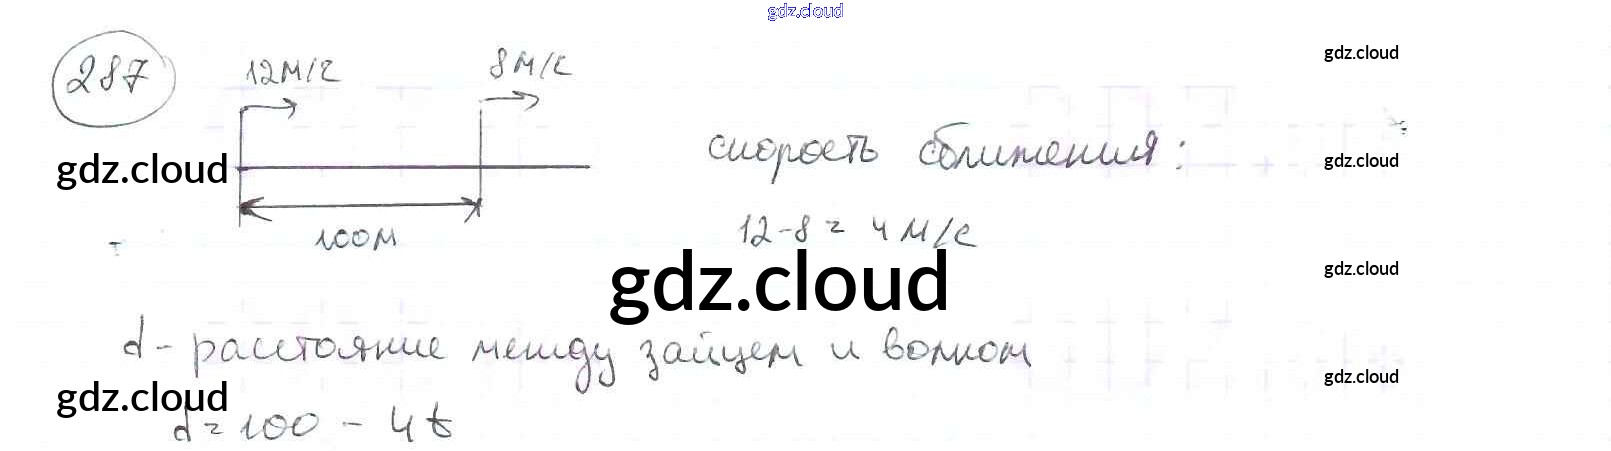 gdz.cloud
287
12м/с
8м/с
gdz.cloud
скорость сближения:
gdz.cloud
gdz.cloud
100м
12-8=4м/с
gdz.cloud
gdz.cloud
d - расстояние между зайцем и волком
gdz.cloud
gdz.cloud
d=100-4t